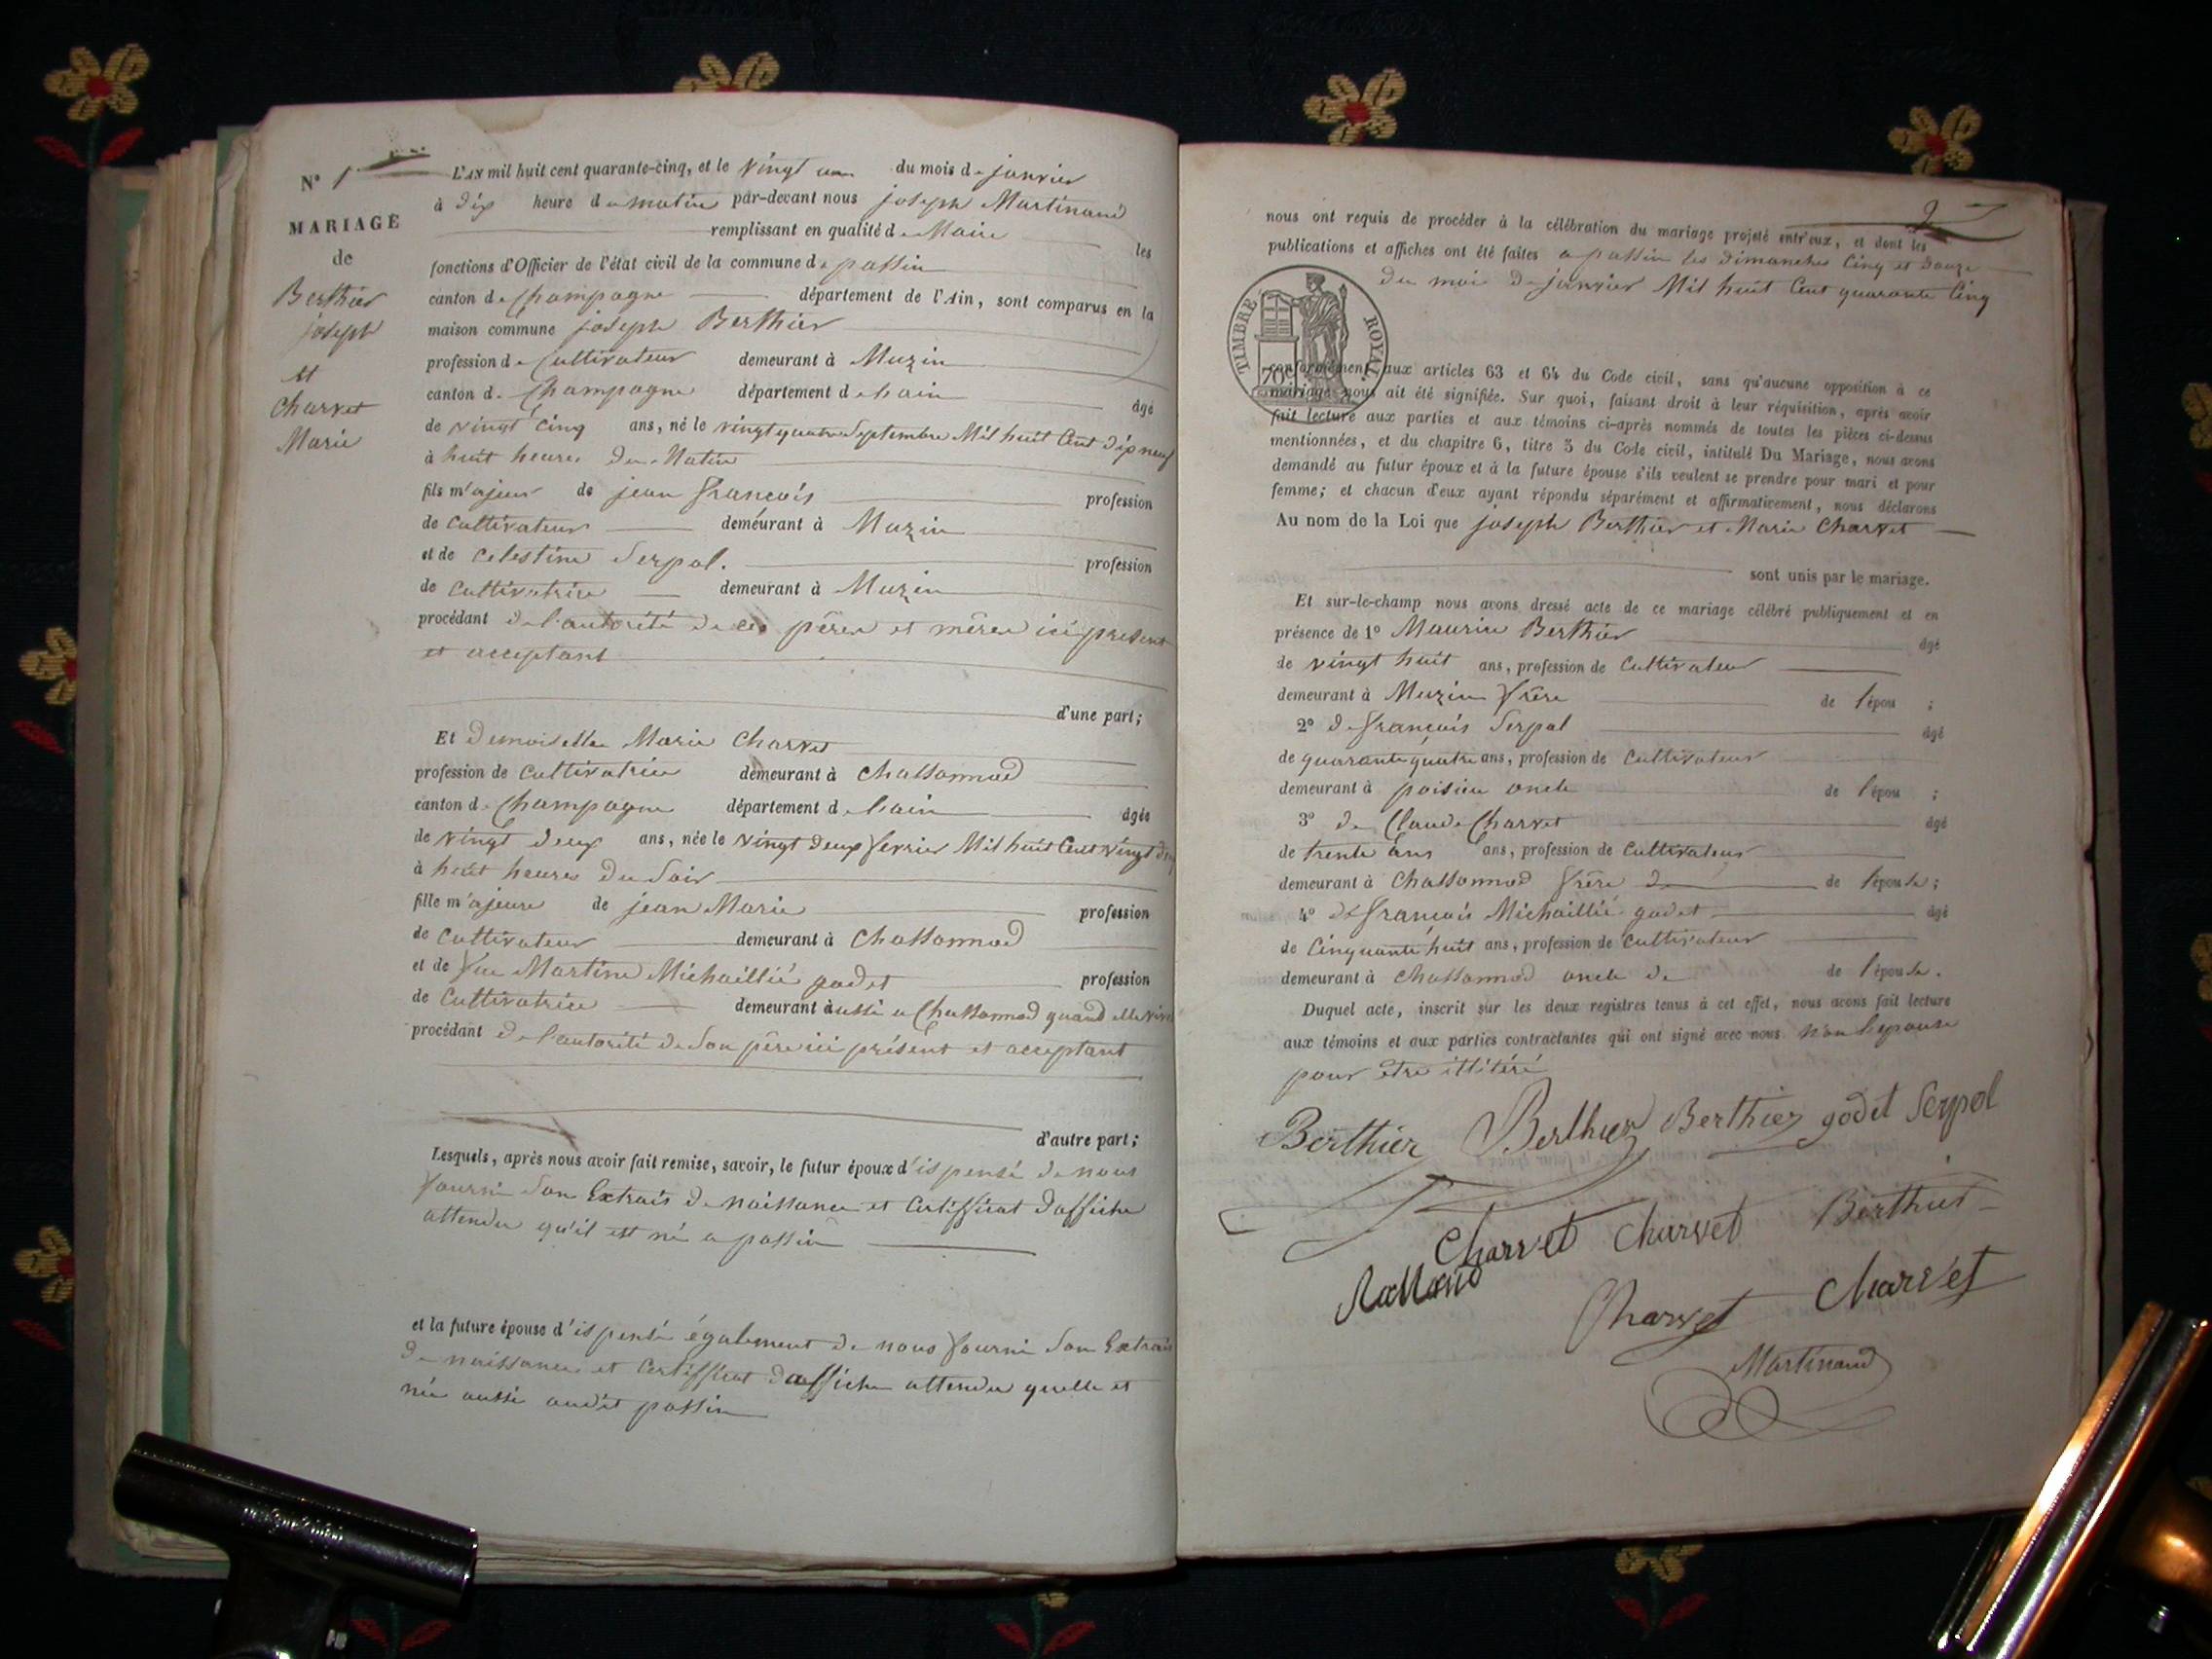 N° 1
MARIAGE
de
Berthier
joseph
et
Charvet
Marie
L'AN mil huit cent quarante-cinq, et le vingt un du mois de janvier
à dix heure du matin par-devant nous joseph Martinand
remplissant en qualité de Maire les
fonctions d'Officier de l'état civil de la commune de passin
canton de Champagne département de l'Ain, sont comparus en la
maison commune joseph Berthier
profession de Cultivateur demeurant à Muzin
canton de Champagne département de lain âgé
de vingt cinq ans, né le vingt quatre Septembre Mil huit Cent dix neuf
à huit heures du Matin
fils majeur de jean françois profession
de Cultivateur demeurant à Muzin
et de Celestine Serpol. profession
de Cultivatrice demeurant à Muzin
procédant de l'autorité de ces pères et mères ici présent
et acceptant
d'une part;
Et demoiselle Marie Charvet
profession de Cultivatrice demeurant à Chassonnod
canton de Champagne département de lain âgée
de vingt deux ans, née le vingt deux fevrier Mil huit Cent vingt deux
à huit heures du Soir
fille majeure de jean Marie profession
de Cultivateur demeurant à Chassonnod
et de feue Martine Michaillié godet profession
de Cultivatrice demeurant aussi a Chassonnod quand elle vivé
procédant de l'autorité de Son père ici présent et acceptant
d'autre part;
Lesquels, après nous avoir fait remise, savoir, le futur époux d'ispensé de nous
fourni Son Extrait de naissance et Certifficat d'affiche
attendu qu'il est né a passin
et la future épouse d'ispensé également de nous fourni Son Extrait
de naissance et Certifficat daffiche attendu quelle et
née aussi audit passin
2
nous ont requis de procéder à la célébration du mariage projeté entr'eux, et dont les
publications et affiches ont été faites a passin les dimanches Cinq et douze
du mois de janvier Mil huit Cent quarante Cinq
TIMBRE ROYAL.
70c
conformément aux articles 63 et 64 du Code civil, sans qu'aucune opposition à ce
mariage nous ait été signifiée. Sur quoi, faisant droit à leur réquisition, après avoir
fait lecture aux parties et aux témoins ci-après nommés de toutes les pièces ci-dessus
mentionnées, et du chapitre 6, titre 5 du Code civil, intitulé Du Mariage, nous avons
demandé au futur époux et à la future épouse s'ils veulent se prendre pour mari et pour
femme; et chacun d'eux ayant répondu séparément et affirmativement, nous déclarons
Au nom de la Loi que joseph Berthier et Marie Charvet
sont unis par le mariage.
Et sur-le-champ nous avons dressé acte de ce mariage célébré publiquement et en
présence de 1° Maurice Berthier âgé
de vingt huit ans, profession de Cultivateur
demeurant à Muzin frère de l'épou ;
2° de françois Serpol âgé
de quarante quatre ans, profession de Cultivateur
demeurant à poisieu oncle de l'épou ;
3° de Claude Charvet âgé
de trente ans ans, profession de Cultivateur
demeurant à Chassonnod frère de de l'épouse;
4° de françois Michaillié godet âgé
de Cinquante huit ans, profession de Cultivateur
demeurant à Chassonnod oncle de de l'épouse.
Duquel acte, inscrit sur les deux registres tenus à cet effet, nous avons fait lecture
aux témoins et aux parties contractantes qui ont signé avec nous non l'epouse
pour être illitéré
Berthier Berthier Berthier godet Serpol
Charvet Charvet Berthier
Charvet Charvet
Martinand